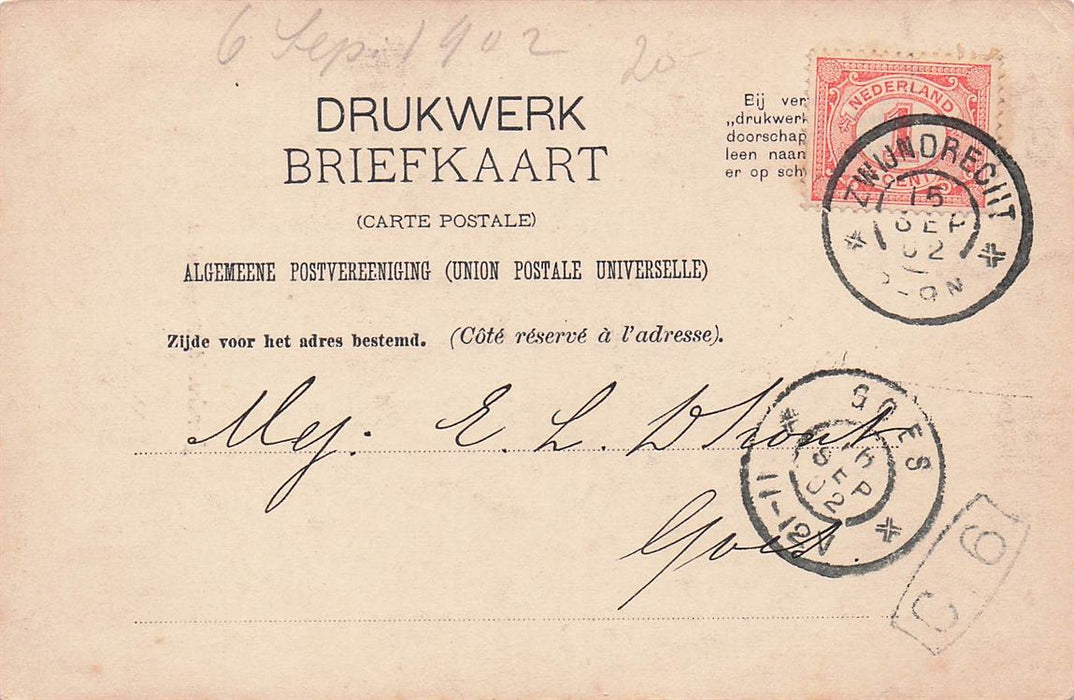 6 Sep. 1902
20-
DRUKWERK
BRIEFKAART
(CARTE POSTALE)
ALGEMEENE POSTVEREENIGING (UNION POSTALE UNIVERSELLE)
Zijde voor het adres bestemd. (Côté réservé à l'adresse).
Bij ver
„drukwerk
doorschap
leen naam
er op sch
NEDERLAND
1
CENT
ZWIJNDRECHT
15
SEP
02
-9N
Mej. E. L.
Goes.
GOES
SEP
02
11-12N
C 6